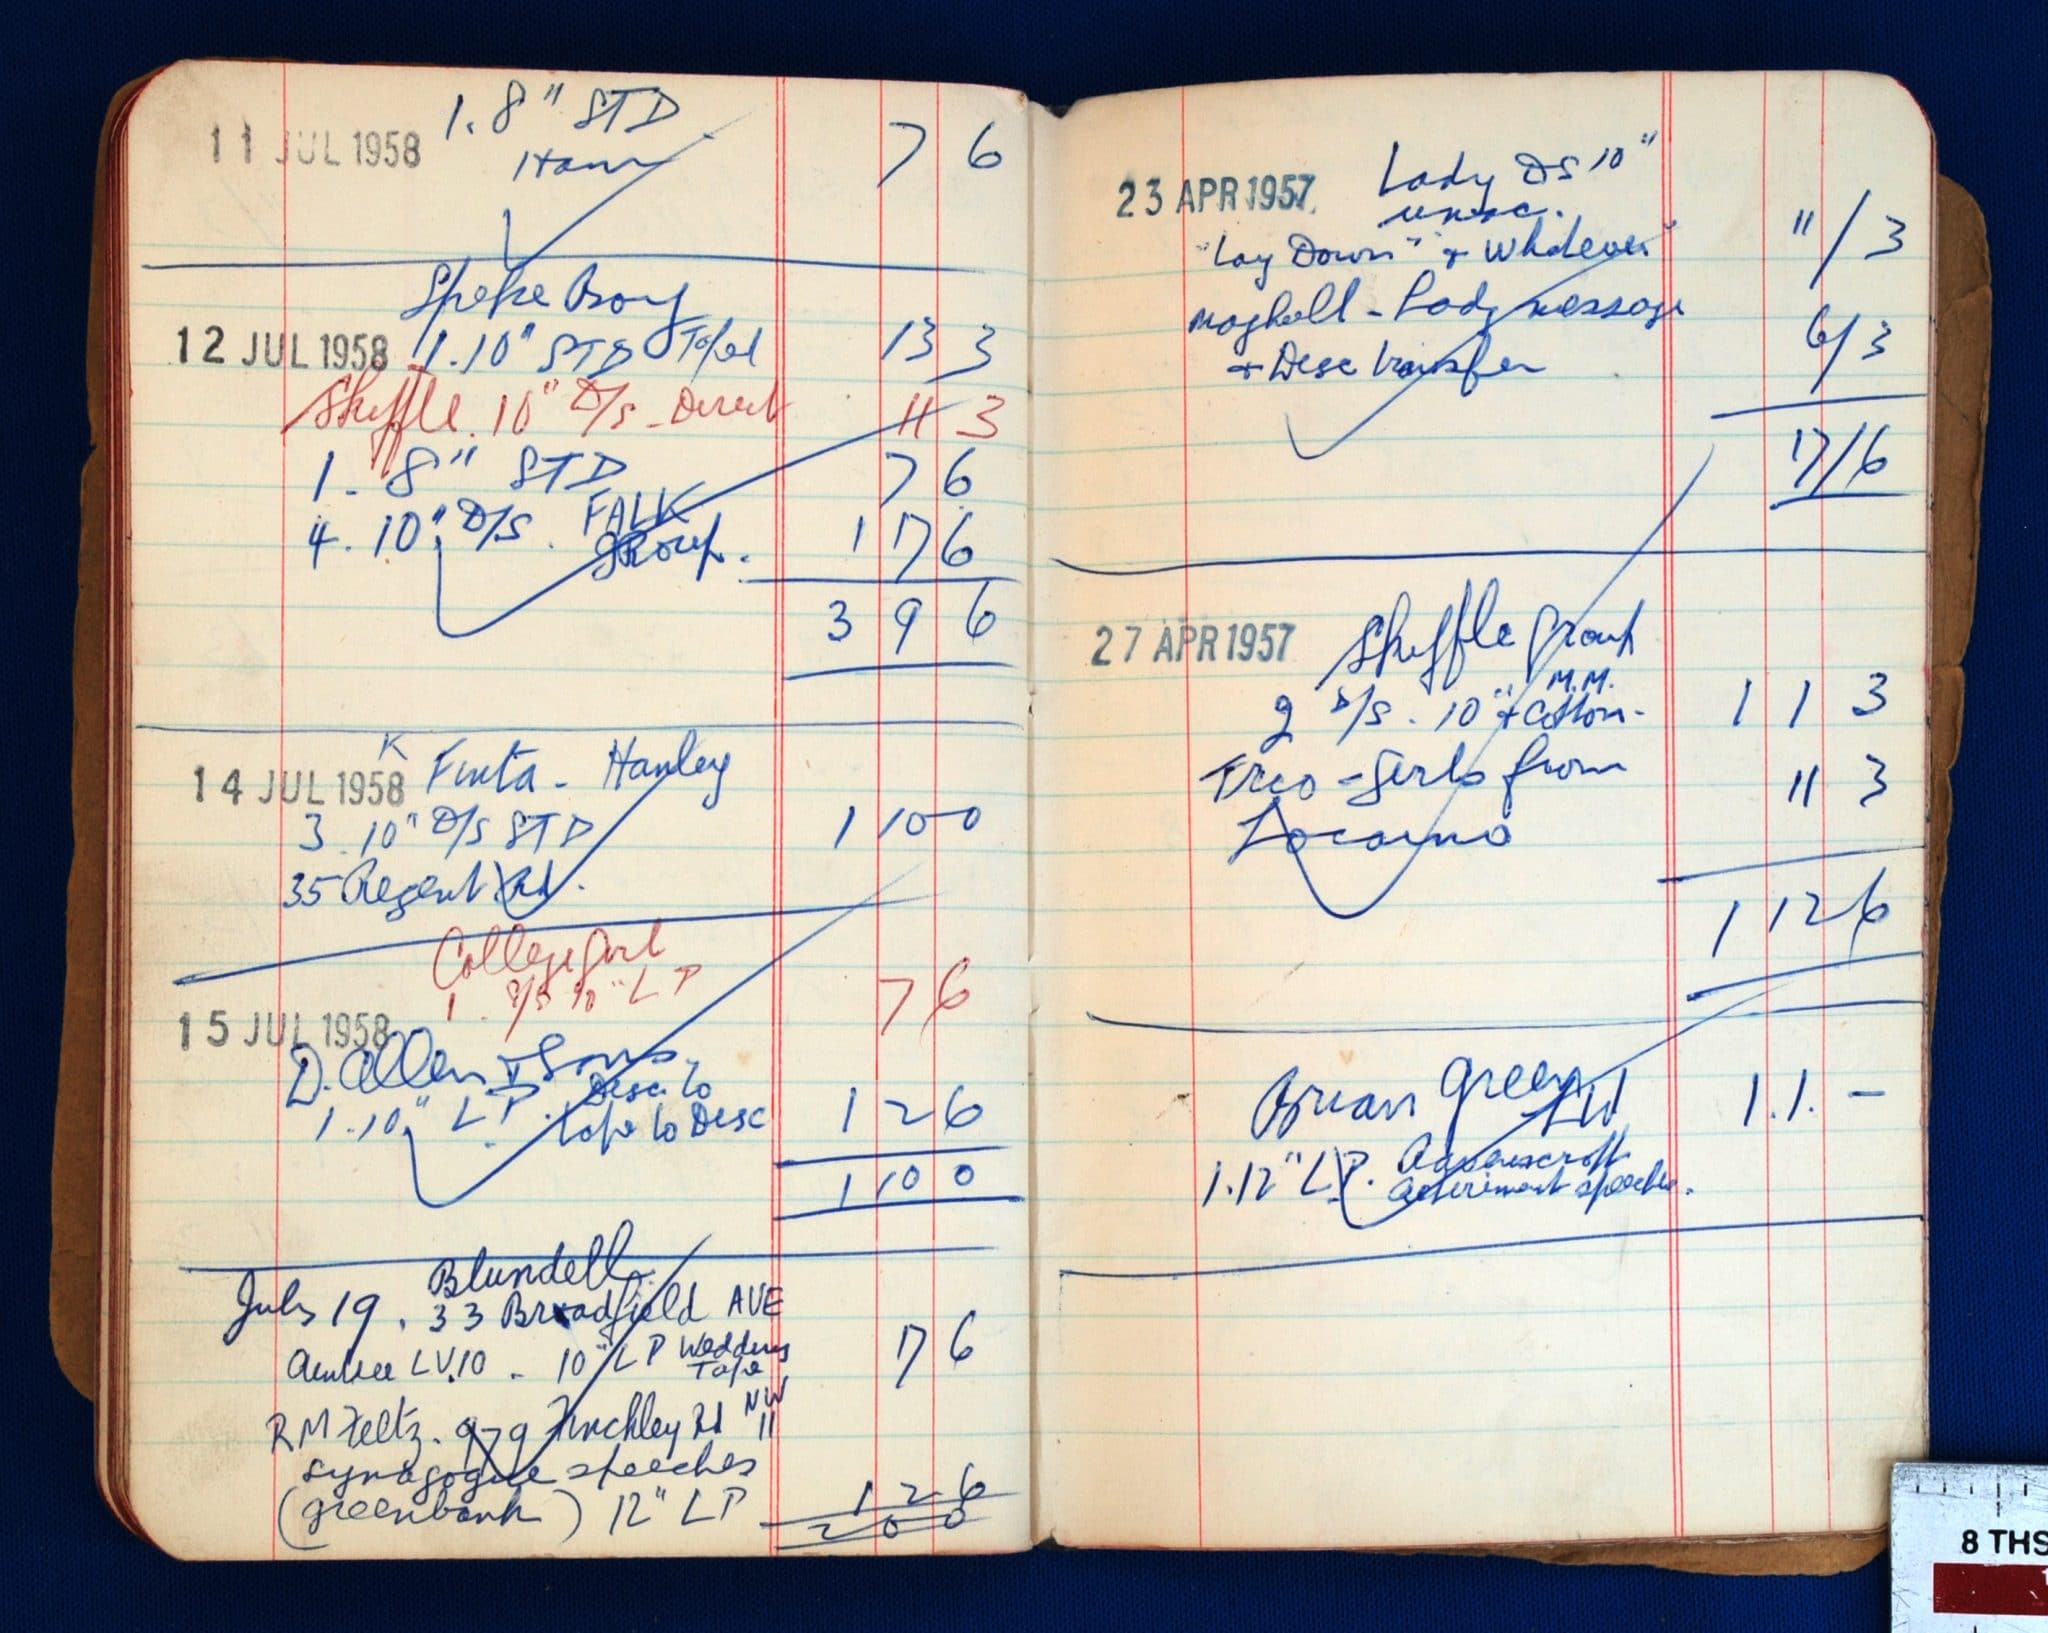 11 JUL 1958 1. 8" STD 7 6
Speke Boy
12 JUL 1958 1. 10" STD Taped 13 3
Shuffle. 10" D/S - Direct 11 3
1. 8" STD 7 6
4. 10" D/S. FALK 1 17 6
group.
3 9 6
14 JUL 1958 K Finta - Hanley
3. 10" D/S STD 1 10 0
35 Regent Rd.
College Girl
1. S/S 10" LP 7 6
15 JUL 1958
D. Allen & Sons.
1. 10" LP. Disc to 1 2 6
tape to Disc
1 10 0
Blundell
July 19. 33 Broadfield AVE
Aintree LV.10 - 10" LP Wedding 17 6
Tape
R M Feltz. 979 Finchley Rd NW
11
synagogue speeches
(greenbank) 12" LP 1 2 6
2 0 0
23 APR 1957 Lady DS 10"
"Lay Down" + Whatever" 11/3
Maghull - Lady message
+ Disc transfer 6/3
17/6
27 APR 1957 Shuffle Group
2 D/S. 10" M.M.
+ Cotton - 1 1 3
Trio - Girls from 11 3
Locarno
1 12 6
Brian Green Ltd 1. 1. -
1. 12" LP. Ravenscroft
Retirement speeches.
8 THS